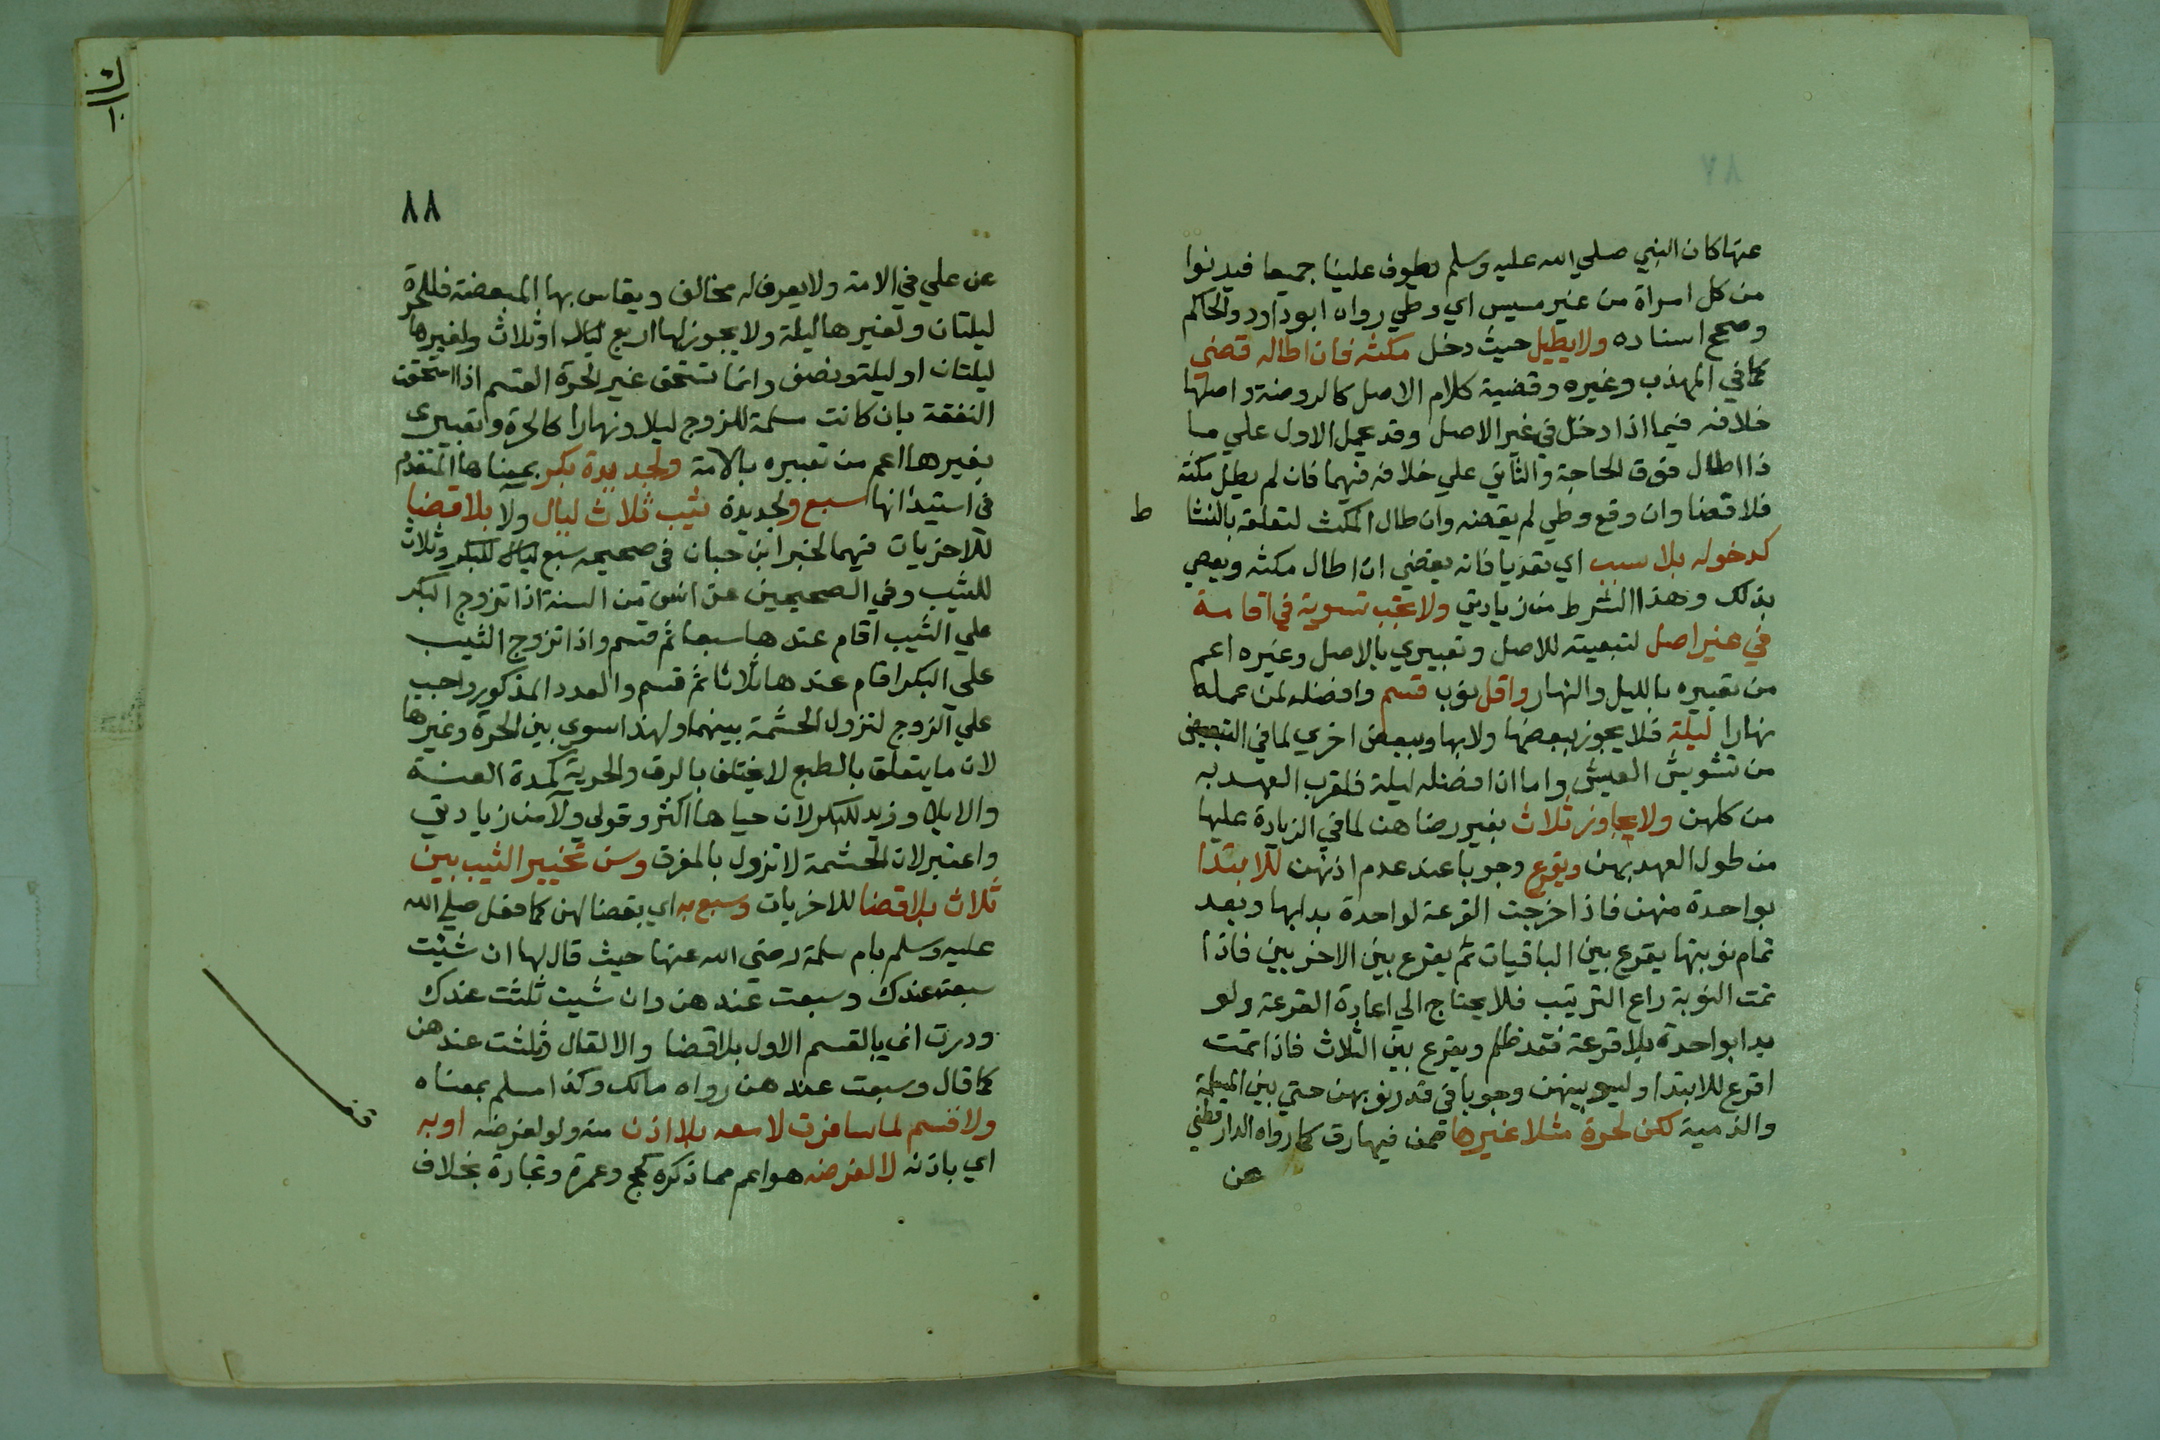 عنها كان النبي صلي الله عليه وسلم يطوف علينا جميعا فيدنوا
من كل امراة من غير مسيس اي وطي رواه ابو داود والحاكم
وصحح اسناده ولا يطيل حيث دخل مكثه فان اطاله قضي
كما في المهذب وغيره وقضية كلام الاصل كالروضة واصلها
خلافه فيما اذا دخل في غير الاصل وقد يحمل الاول علي ما
اذا اطال فوق الحاجة والثاني علي خلافه فيهما فان لم يطل مكثه
فلا قضا وان وقع وطي لم يقضه وان طال المكث لتعلقه بالنشا
ط
كدخوله بلا سبب اي تعديا فانه يقضي ان اطال مكثه ويعصي
بذلك وهذا الشرط من زيادتي ولا تجب تسوية في اقامة
في غير اصل لتبعيته للاصل وتعبيري بالاصل وغيره اعم
من تعبيره بالليل والنهار واقل نوب قسم وافضله لمن عمله
نهارا ليلة فلا يجوز ببعضها ولا بها وببعض اخري لما في التبعيض
من تشويش العيش واما ان افضله ليلة فلقرب العهد به
من كلهن ولا يجاوز ثلاث بغير رضاهن لما في الزيادة عليها
من طول العهد بهن ويقرع وجوبا عند عدم اذنهن للابتدا
بواحدة منهن فاذا خرجت القرعة لواحدة بدا بها وبعد
تمام نوبتها يقرع بين الباقيات ثم يقرع بين الاخريين فاذا
تمت النوبة راع الترتيب فلا يحتاج الي اعادة القرعة ولو
بدا بواحدة بلا قرعة فقد ظلم ويقرع بين الثلاث فاذا تمت
اقرع للابتدا وليسو بينهن وجوبا في قدر نوبهن حتي بين المسلمة
والذمية لكن لحرة مثلا غيرها فمن فيها رق كما رواه الدارقطني
عن
٨٨
عن علي في الامة ولا يعرف له مخالف ويقاس بها المبعضة فللحرة
ليلتان ولغيرها ليلة ولا يجوز لها اربع ليال او ثلاث ولغيرها
ليلتان او ليلة ونصف وانما تستحق غير الحرة القسم اذا استحقت
النفقة بان كانت مسلمة للزوج ليلا ونهارا كالحرة وتعبيري
بغيرها اعم من تعبيره بالامة ولجديدة بكر بمعناها المتقدم
في استيذانها سبع ولجديدة ثيب ثلاث ليال ولا بلا قضا
للاخريات فيهما لخبر ابن حبان في صحيحه سبع ليال للبكر وثلاث
للثيب وفي الصحيحين عن انس من السنة اذا تزوج البكر
علي الثيب اقام عندها سبعا ثم قسم واذا تزوج الثيب
علي البكر اقام عندها ثلاثا ثم قسم والعدد المذكور واجب
علي الزوج لتزول الحشمة بينهما ولهذا سوي بين الحرة وغيرها
لان ما يتعلق بالطبع لا يختلف بالرق والحرية كمدة العنة
والايلا وزيد للبكر لان حياها اكثر وقولي ولا من زيادتي
واعتبر لان الحشمة لا تزول بالمفرق وسن تخيير الثيب بين
ثلاث بلا قضا للاخريات وسبع به اي بقضا لهن كما فعل صلي الله
عليه وسلم بام سلمة رضي الله عنها حيث قال لها ان شئت
سبعت عندك وسبعت عندهن وان شيت ثلثت عندك
ودرت اي بالقسم الاول بلا قضا والا لقال وثلثت عندهن
كما قال وسبعت عندهن رواه مالك وكذا مسلم بمعناه
ولا قسم لمن سافرت لا معه بلا اذن منه ولو لغرضه او به
اي باذنه لا لغرضه هو اعم مما ذكره كحج وعمرة وتجارة بخلاف